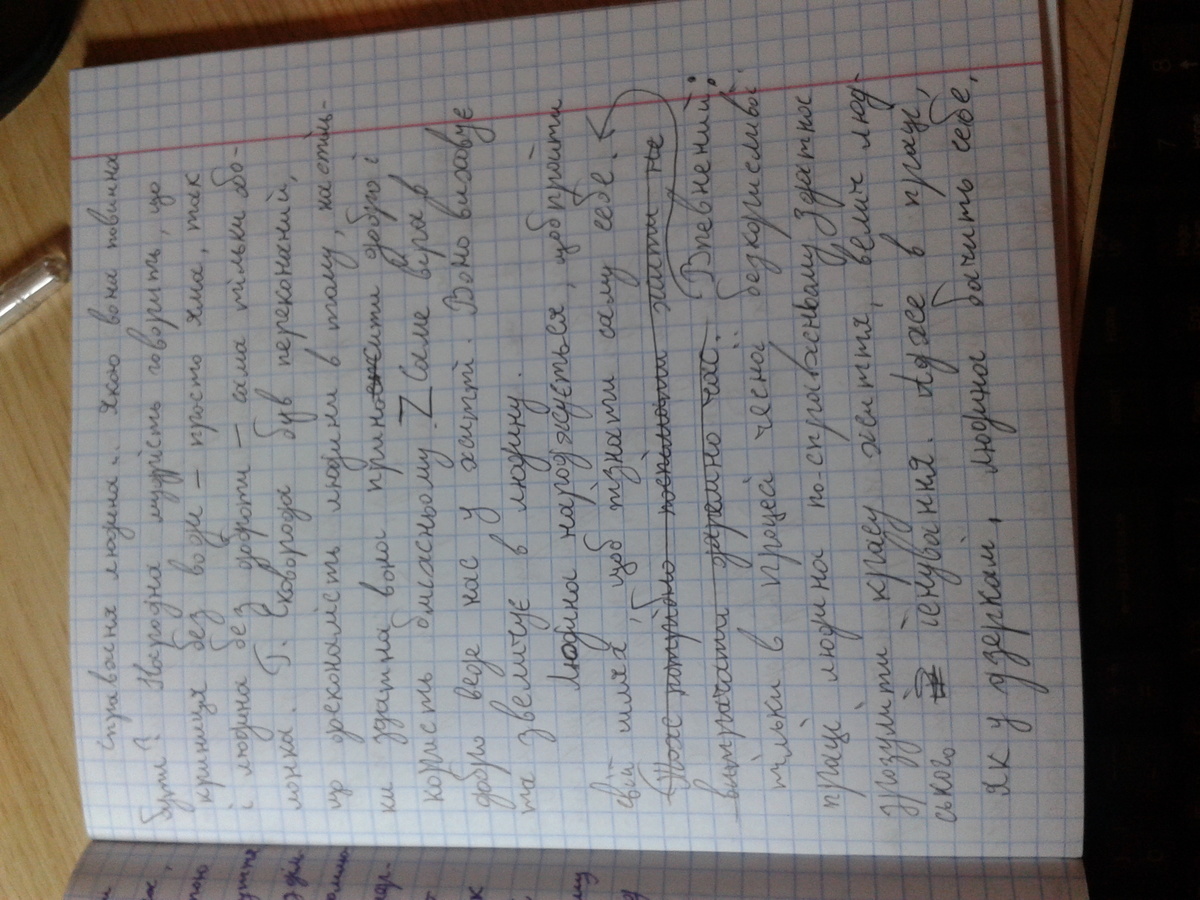 Справжня людина... Якою вона повинна
бути? Народна мудрість говорить, що
криниця без води – просто яма, так
і людина без доброти – сама тільки обо-
лонка. Г. Сковорода був переконаний,
що досконалість людини в тому, наскіль-
ки здатна вона приносити добро і
користь ближньому. Z Саме віра в
добро веде нас у житті. Воно виховує
та звеличує в людину.
Людина народжується, щоб пройти
свій шлях, щоб пізнати саму себе.
Час потрібно постійно жити не
витрачати даремно час. Впевнений:
тільки в процесі чесної безкорисливої
праці людина по-справжньому здатна
зрозуміти красу життя, велич люд-
ського існування. Адже в праці,
як у дзеркалі, людина бачить себе,